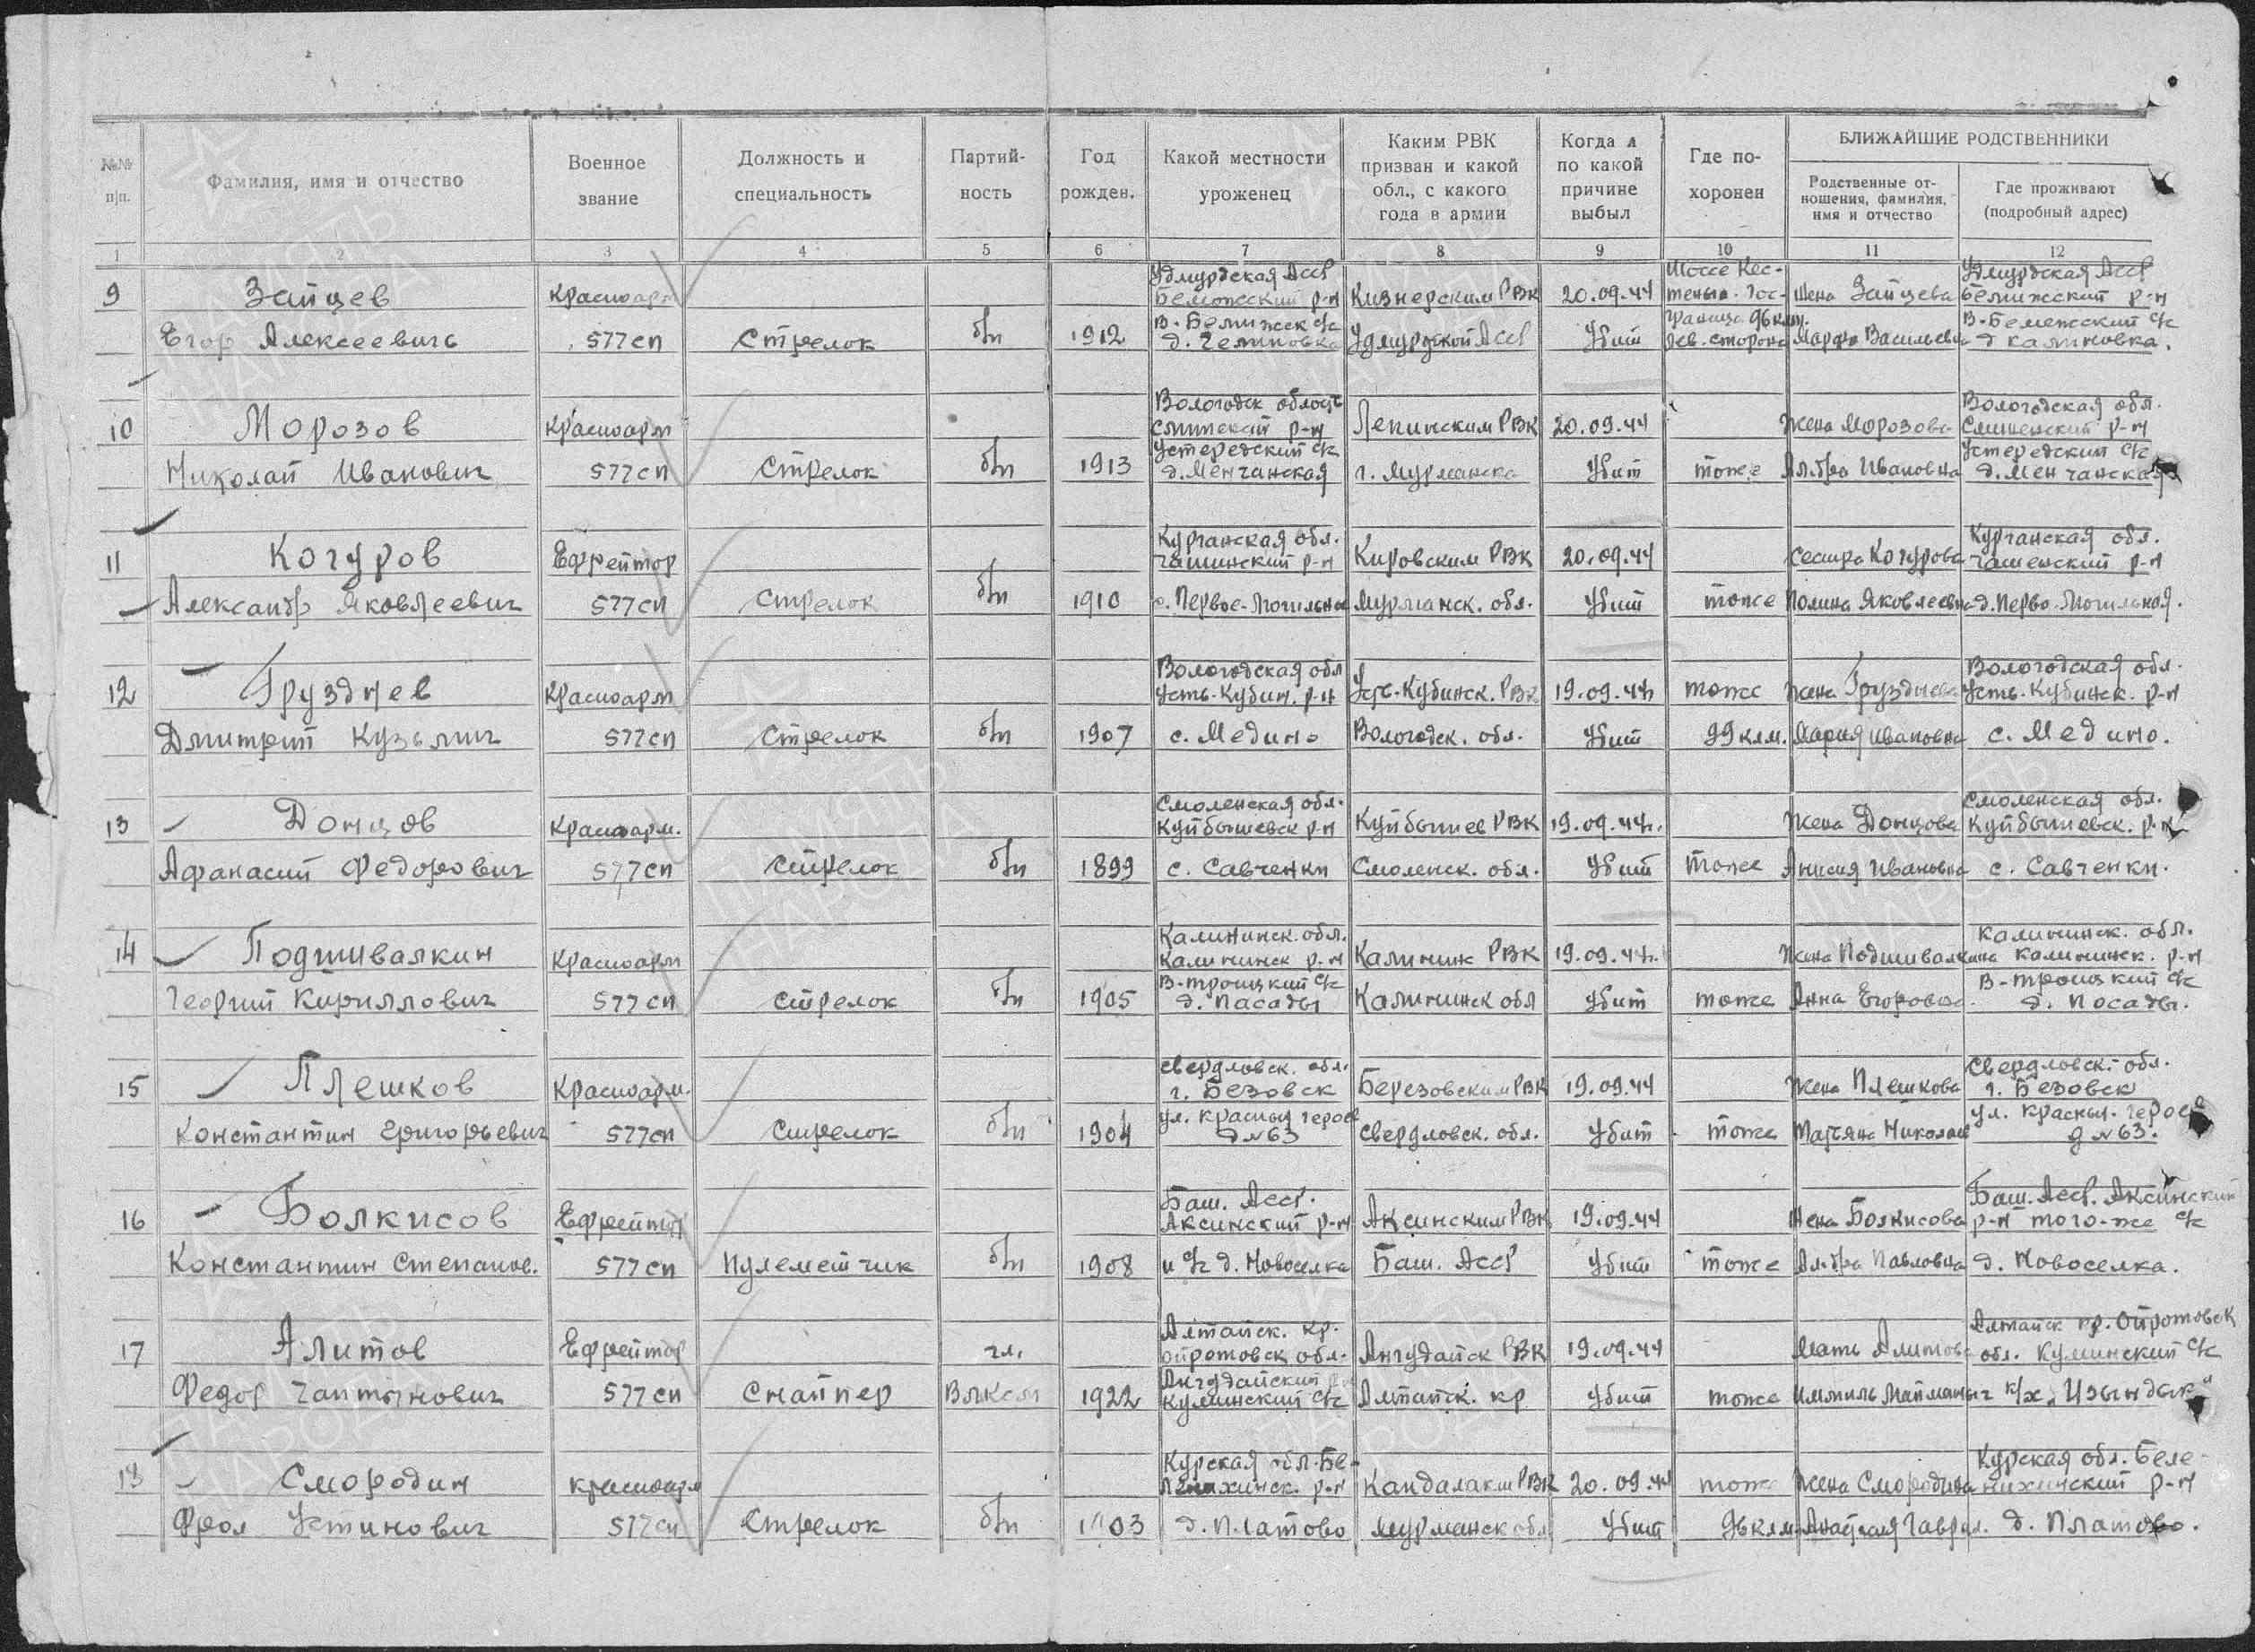 №№ п|п.
Фамилия, имя и отчество
Военное звание
Должность и специальность
Партий-ность
Год рожден.
Какой местности уроженец
Каким РВК призван и какой обл., с какого года в армии
Когда и по какой причине выбыл
Где по-хоронен
БЛИЖАЙШИЕ РОДСТВЕННИКИ
Родственные от-ношения, фамилия, имя и отчество
Где проживают (подробный адрес)
1 2 3 4 5 6 7 8 9 10 11 12
Удмуртская Асср Шоссе Кес- Удмуртская Асср
9 Зайцев Красноарм Бемижский р-н Кизнерским РВК 20.09.44 теньга-Гос- жена Зайцева Бемижский р-н
В-Бемижск с/с граница 96 клм. В-Бемежский с/с
Егор Алексеевичь 577 сп Стрелок б/п 1912 Удмуртской Асср Убит сев. сторона Марфа Васильевна д Калиновка.
Вологодск область Вологодская обл.
10 Морозов Красноарм р-н Ленинским РВК 20.09.44 Жена Морозова р-н
Устередский с/с Устередский с/с
Николай Иванович 577 сп Стрелок б/п 1913 д. Менчанская г. Мурманска Убит тоже Ал-дра Ивановна д. Менчанская
Курганская обл. Курганская обл.
11 Кочуров Ефрейтор Чашинский р-н Кировским РВК 20.09.44 сестра Кочурова Чашенский р-н
Александр Яковлеевич 577 сп Стрелок б/п 1910 с. Первое-Могильное Мурманск. обл. Убит тоже Полина Яковлеевна д. Перво-Могильная.
Вологодская обл Вологодская обл.
12 Груздчев Красноарм Усть-Кубин. р-н Усть-Кубинск. РВК 19.09.44 тоже Жена Усть-Кубинск. р-н
Дмитрий Кузьмич 577 сп Стрелок б/п 1907 с. Медино Вологодск. обл. Убит 99 клм. Мария Ивановна с. Медино.
Смоленская обл. Смоленская обл.
13 Донцов Красноарм. Куйбышевск р-н Куйбышев РВК 19.09.44г. Жена Донцова Куйбышевск. р-н
Афанасий Федорович 577 сп Стрелок б/п 1899 с. Савченки Смоленск. обл. Убит тоже Анисия Ивановна с. Савченки.
Калининск. обл. Калининск. обл.
14 Подшивалкин Красноарм Калининск р-н Калинин РВК 19.09.44г. Жена Подшивалкина Калининск. р-н
В-троицкий с/с В-троицкий с/с
Георгий Кириллович 577 сп Стрелок б/п 1905 д. Пасады Калининск обл Убит тоже Анна Егоровна д. Посады.
Свердловск. обл. Свердловск. обл.
15 Плешков Красноарм. г. Безовск Березовским РВК 19.09.44 Жена Плешкова г. Безовск
ул. Красных героев ул. Красных героев
Константин Григорьевич 577 сп Стрелок б/п 1904 д №63 Свердловск. обл. Убит тоже Татьяна Николаев д №63.
Баш. Асср. Баш. Асср. Аксинский
16 Болкисов Ефрейтор Аксинский р-н Аксинским РВК 19.09.44 Жена Болкисова р-н того-же с/с
Константин Степанов. 577 сп Пулеметчик б/п 1908 и с/с д. Новоселка Баш. Асср Убит тоже Ал-дра Павловна д. Новоселка.
Алтайск. кр. Алтайск кр. Ойротовск
17 Алитов Ефрейтор чл. ойротовск обл. Ангудайск РВК 19.09.44 Мать Алитова обл. Куминский с/с
Ангудайский
Федор Чаптынович 577 сп Снайпер Влксм 1922 Куминский с/с Алтайск. кр Убит тоже к/х „Изындык"
Курская обл. Бе- Курская обл. Беле-
18 Смородин красноарм р-н Кандалакш РВК 20.09.44 тоже Жена Смородина нихинский р-н
Фрол Устинович 577 сп Стрелок б/п 1903 д. Платово Мурманск обл Убит 96 клм. Анатолия Гаврил. д. Платово.